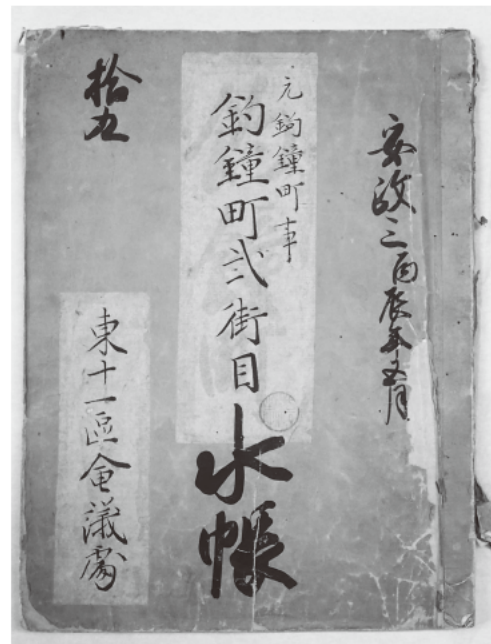 安政三丙辰年五月
元釣鐘町事
釣鐘町弐街目
水帳
拾五
東十一區會議處